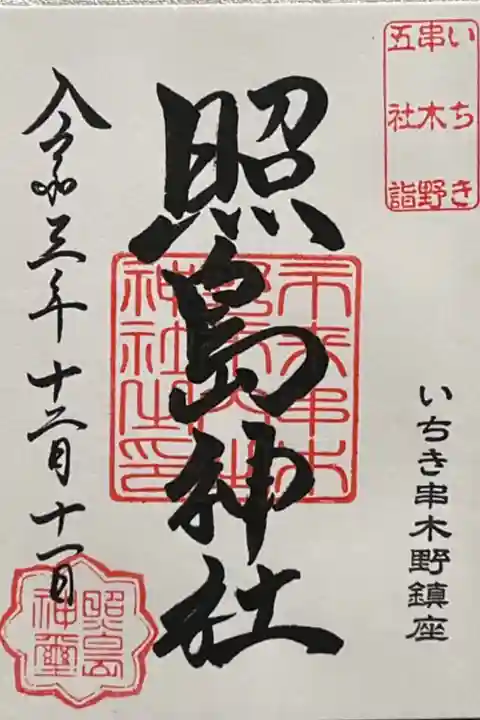 いちき
串木野
五社詣
いちき串木野鎮座
照島神社
神社之印
令和三年十二月十一日
照島
神璽